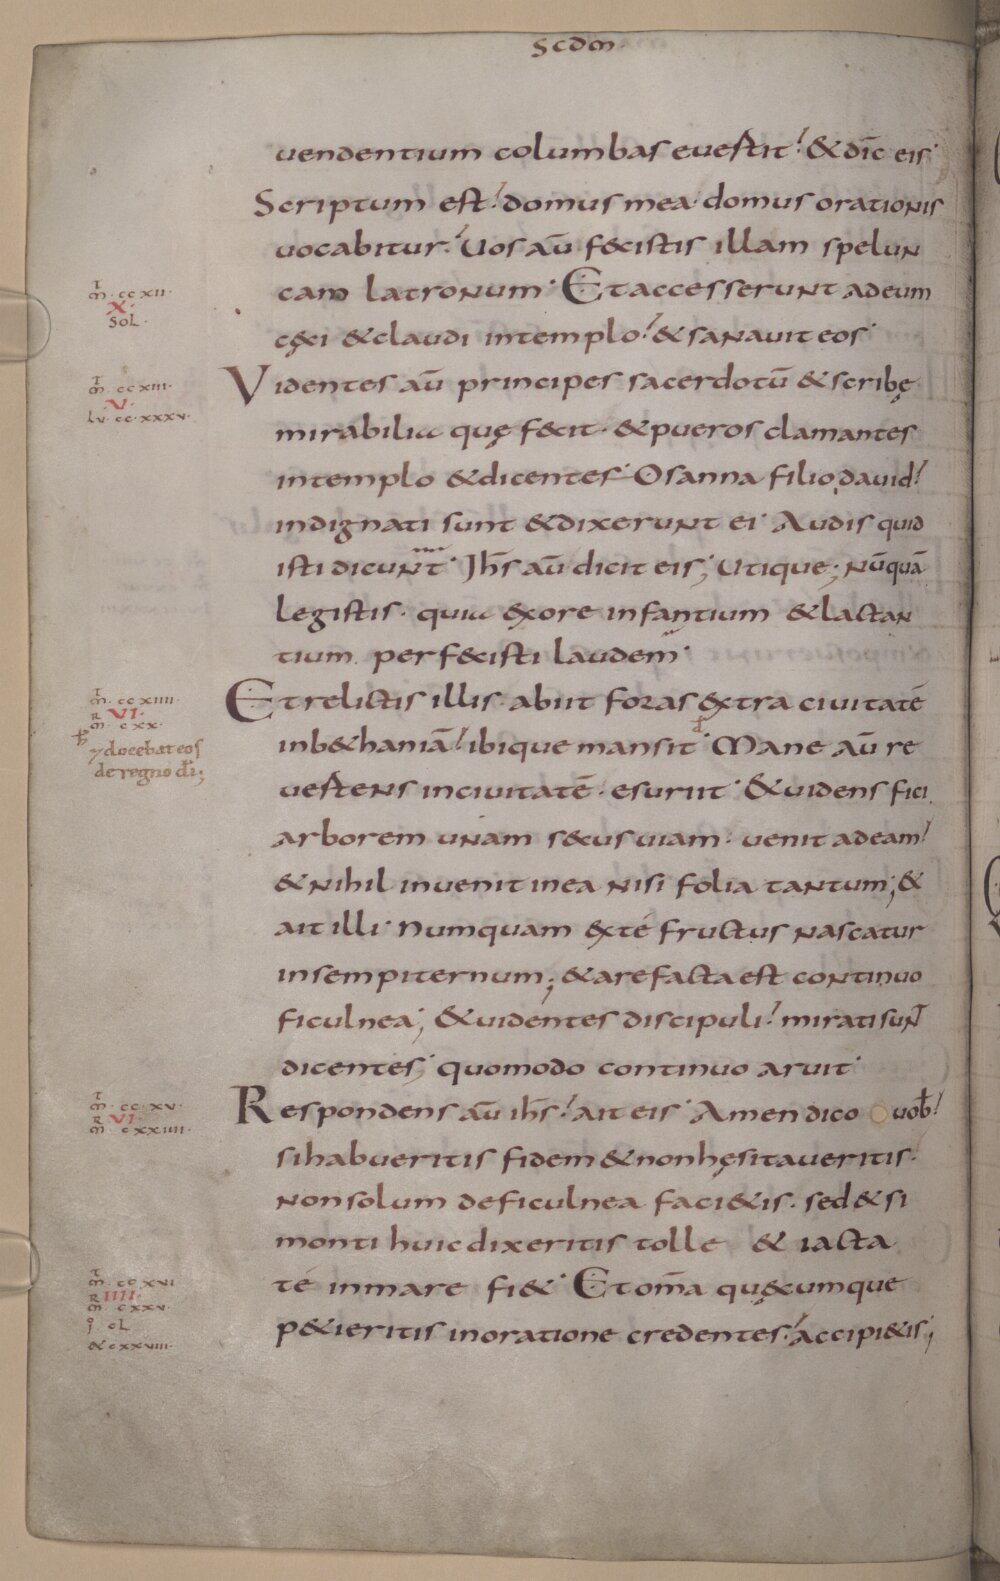 Scdm
uendentium columbas euertit. & dic̄ eis.
Scriptum est. domus mea domus orationis
uocabitur. Uos aū fecistis illam spelun
cam latronum. Et accesserunt ad eum
cęci & claudi in templo. & sanauit eos.
T
m̄. ccxii.
X.
SOL.
Videntes aū principes sacerdotū & scribę
mirabilia quę fecit. & pueros clamantes
in templo & dicentes. Osanna filio dauid.
indignati sunt & dixerunt ei. Audis quid
isti dicunt. Ihs̄ aū dicit eis; Utique; nūquā
legistis. quia ex ore infantium & lactan
tium perfecisti laudem.
T
m̄. ccxiii.
V.
Lv. ccxxxv.
Et relictis illis. abiit foras extra ciuitatē
in b&haniā. ibique mansit. Mane aū re
uertens in ciuitatē. esuriit. & uidens fici
arborem unam secus uiam. uenit ad eam.
& nihil inuenit in ea nisi folia tantum; &
ait illi. Numquam ex te fructus nascatur
in sempiternum; & arefacta est continuo
ficulnea; & uidentes discipuli. mirati sun̄t
dicentes; quomodo continuo aruit.
T
m̄. ccxiiii.
R VI.
m̄. cxx.
& docebat eos
de regno dī;
Respondens aū ihs̄. ait eis. Amen dico uob̄.
si habueritis fidem & non hęsitaueritis.
non solum de ficulnea faci&is. sed & si
monti huic dixeritis tolle & iacta
te in mare fi&. Et om̄a quęcumque
p&ieritis in oratione credentes. accipi&is;
T
m̄. ccxv.
R VI.
m̄. cxxiiii.
T
m̄. ccxvi
R IIII.
m̄. cxxv.
cL
& cxxviii.